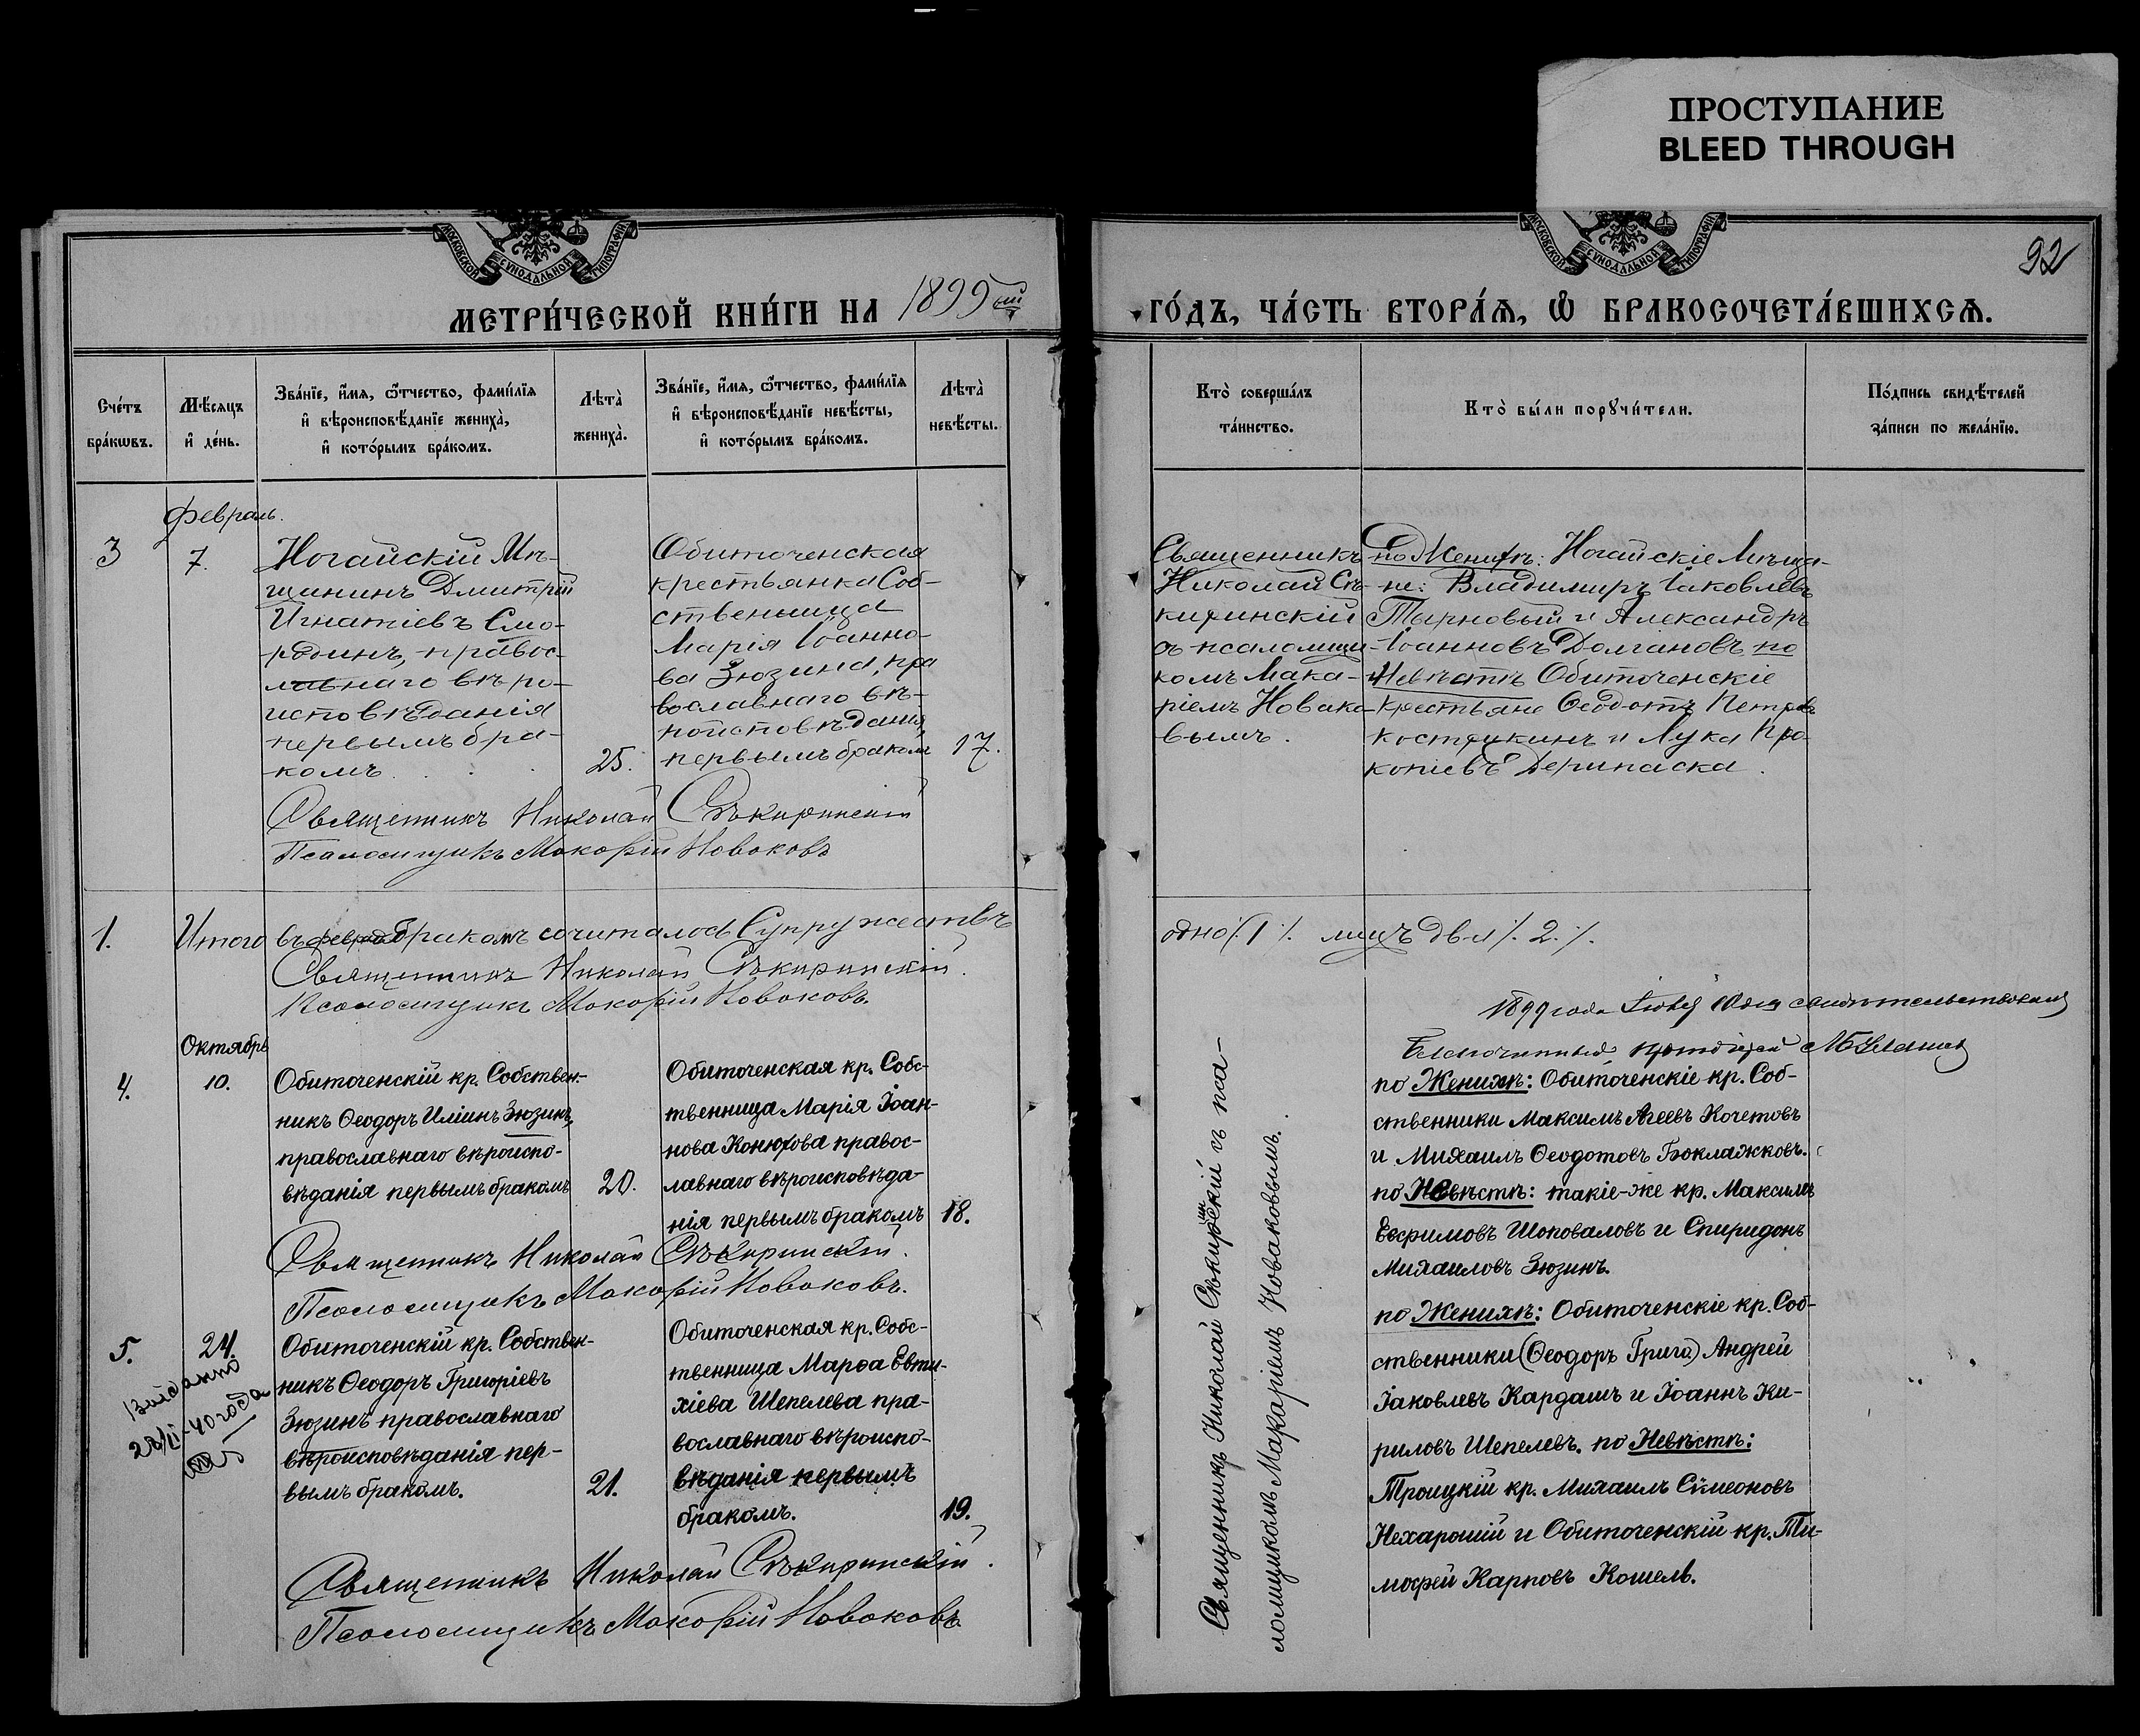 ПРОСТУПАНИЕ
BLEED THROUGH
МОСКОВСКОЙ СѴНОДАЛЬНОЙ ТИПОГРАФІИ
МОСКОВСКОЙ СѴНОДАЛЬНОЙ ТИПОГРАФІИ
92
МЕТРИ́ЧЕСКОЙ КНИ́ГИ НА 1899ый
ГО́ДЪ, ЧА́СТЬ ВТОРА́Я, Ѡ БРАКОСОЧЕТА́ВШИХСЯ.
Сче́тъ
бра́кѡвъ.
Мѣ́сяцъ
и҆ де́нь.
Зва́нїе, и҆́мя, ѻ҆́тчество, фами́лїя
и҆ вѣроисповѣ́данїе жениха̀,
и҆ кото́рымъ бра́комъ.
Лѣта̀
жениха̀.
Зва́нїе, и҆́мя, ѻ҆́тчество, фами́лїя
и҆ вѣроисповѣ́данїе невѣ́сты,
и҆ кото́рымъ бра́комъ.
Лѣта̀
невѣ́сты.
Кто̀ соверша́лъ
та́инство.
Кто̀ бы́ли порꙋчи́тели.
По́дпись свидѣ́телей
за́писи по жела́нїю.
Февраль.
3
7.
Ногайскій Мѣ-
щанинъ Дмитрій
Игнатіевъ Смо-
родинъ, правос-
лавнаго вѣро-
исповѣданія
первымъ бра-
комъ
25.
Обиточенская
крестьянка Соб-
ственница
Марія Іоанно-
ва Зюзина, пра
вославнаго вѣ-
роисповѣданія,
первымъ бракомъ
17.
Священникъ
Николай Сѣ-
киринскій
съ псаломщи-
комъ Мака-
ріемъ Новако-
вымъ.
по Женихѣ: Ногайскіе Мѣща-
не: Владимиръ Іаковлевъ
Тырновый и Александръ
Іоанновъ Долгановъ по
Невѣстѣ Обиточенскіе
крестьяне Ѳеодотъ Петровъ
Костюкинъ и Лука Про-
копіевъ Дерипаска.
Священникъ Николай Сѣкиринскій
Псаломщикъ Макарій Новаковъ
1.
Итого въ февра бракомъ сочиталось Супружествъ
одно /. 1 /. лицъ два /. 2. /.
Священникъ Николай Сѣкиринскій.
Псаломщикъ Макарій Новаковъ.
1899 года 10 дня свидѣтельствовалъ
Благочинный, протоіерей
Октябрь
4.
10.
Обиточенскій кр. Собствен-
никъ Ѳеодоръ Иліинъ Зюзинъ,
православнаго вѣроиспо-
вѣданія первымъ бракомъ
20.
Обиточенская кр. Собс-
твенница Марія Іоан-
нова Конюхова правос-
лавнаго вѣроисповѣда-
нія первымъ бракомъ
18.
по Женихѣ: Обиточенскіе кр. Соб-
ственники Максимъ Агеевъ Кочетовъ
и Михаилъ Ѳеодотовъ Боклажковъ.
по Невѣстѣ: такіе-же кр. Максимъ
Евфимовъ Шоповаловъ и Спиридонъ
Михаиловъ Зюзинъ.
Священникъ Николай Сѣкиринскій.
Псаломщикъ Макарій Новаковъ.
5.
24.
Выдано
28/II-40 года
Обиточенскій кр. Собствен-
никъ Ѳеодоръ Григоріевъ
Зюзинъ православнаго
вѣроисповѣданія пер-
вымъ бракомъ.
21.
Обиточенская кр. Собс-
твенница Марѳа Евти-
хіева Шепелева пра-
вославнаго вѣроиспо-
вѣданія первымъ
бракомъ.
19.
Священникъ Николай Сѣкиринскій съ пса-
ломщикомъ Макаріемъ Новаковымъ.
по Женихѣ: Обиточенскіе кр. Соб-
ственники (Ѳеодоръ Григо) Андрей
Іаковлевъ Кардашъ и Іоаннъ Ки-
риловъ Шепелевъ. по Невѣстѣ:
Троицкій кр. Михаилъ Сѵмеоновъ
Нехарошій и Обиточенскій кр. Ти-
моѳей Карповъ Кошель.
Священникъ Николай Сѣкиринскій.
Псаломщикъ Макарій Новаковъ.